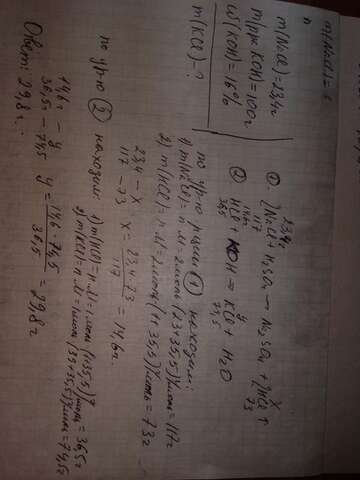 m(NaCl)=23,4г
m(рра KOH)=100г
ω(KOH)=16%
m(KCl)-?
23,4г x
① 2NaCl + H₂SO₄ → Na₂SO₄ + 2HCl↑
117 73
14,6г y
② HCl + KOH = KCl + H₂O
36,5 74,5
по ур-ю ① находим:
1) m(NaCl)=n·M=2моль·(23+35,5)г/моль=117г
2) m(HCl)=n·M=2моль·(1+35,5)г/моль=73г
23,4 – x x = 23,4·73 = 14,6г.
117 – 73 117
по ур-ю ② находим: 1) m(HCl)=n·M=1моль·(1+35,5)=36,5г
2) m(KCl)=n·M=1моль·(39+35,5)г/моль=74,5г
14,6 – y y = 14,6·74,5 = 29,8г
36,5 – 74,5 36,5
Ответ: 29,8г.